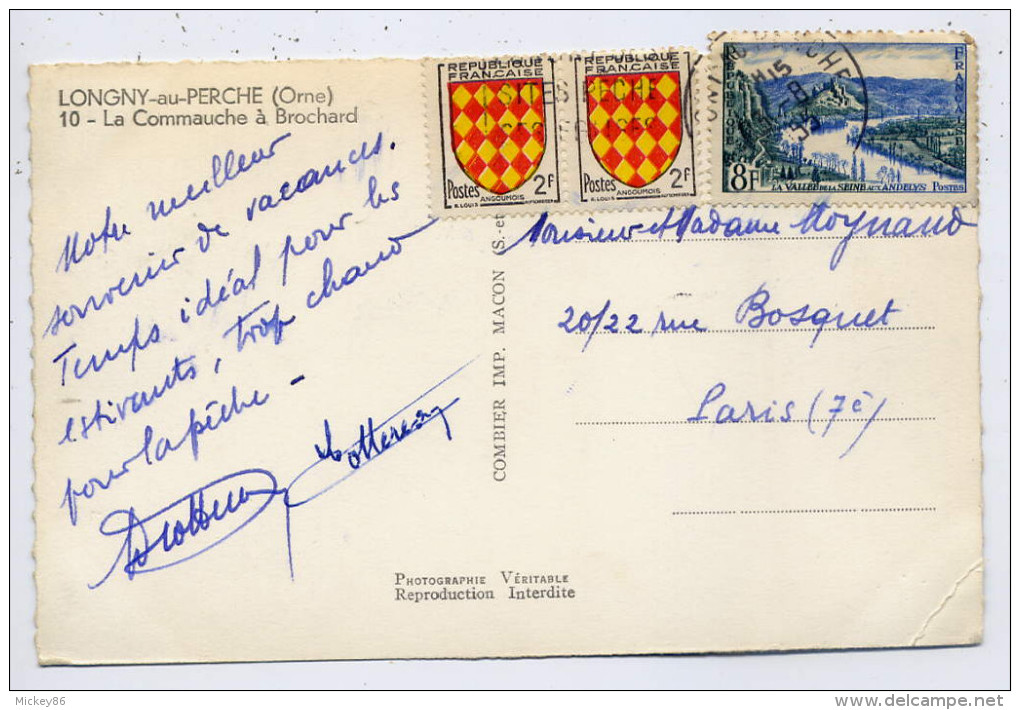 LONGNY-au-PERCHE (Orne)
10 - La Commauche à Brochard
Notre meilleur
souvenir de vacances.
Temps idéal pour les
estivants, trop chaud
pour la pêche -
REPUBLIQUE
FRANÇAISE
Postes 2F
ANGOUMOIS
R. LOUIS
REPUBLIQUE
FRANÇAISE
Postes 2F
ANGOUMOIS
R. LOUIS
SITES PECHE
REPUBLIQUE
FRANÇAISE
8F
LA VALLÉE DE LA SEINE AUX ANDELYS POSTES
Monsieur et Madame Moynaud
20/22 rue Bosquet
Paris (7è)
COMBIER IMP. MACON (S.-et
PHOTOGRAPHIE VÉRITABLE
Reproduction Interdite
Mickey86
www.delcampe.net